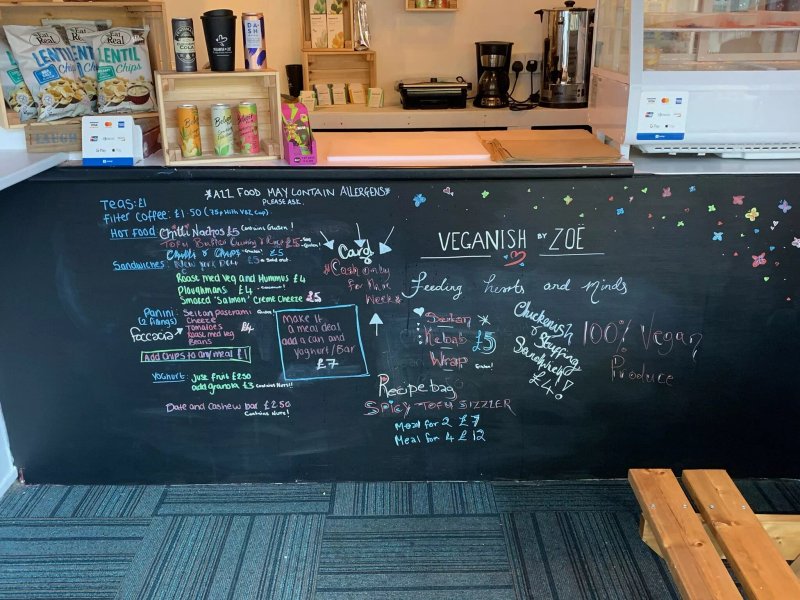 Eat Real
LENTIL
Chips
Eat Real
LENTIL
Chips
COLA
DASH
*ALL FOOD MAY CONTAIN ALLERGENS*
PLEASE ASK.
TEAS: £1
Filter Coffee: £1.50 (75p with VBZ Cup)
HOT FOOD
Chilli Nachos £5 Contains Gluten!
Chilli & Chips £5
Sandwiches:
Roast Med Veg and Hummus £4
Ploughmans £4
Smoked 'Salmon' Creme Cheeze £5
Panini:
(2 fillings)
Foccacia
Seitan pastrami
Cheeze
Tomatoes
Roast med veg
Beans
£4
Add chips to any meal £1
Yoghurt: Just fruit £2.50
add granola £3 Contains Nuts!
Date and Cashew bar £2.50
Contains Nuts!
Make it
a meal deal
add a can and
Yoghurt/Bar
£7
Card
Cash only
for
Week
VEGANISH BY ZOË
feeding hearts and minds
Kebab £5
Wrap
Chickenish
& Stuffing
Sandwich
£4!
100% Vegan
Produce
Recipe bag
SPICY TOFU SIZZLER
Meal for 2 £7
Meal for 4 £12